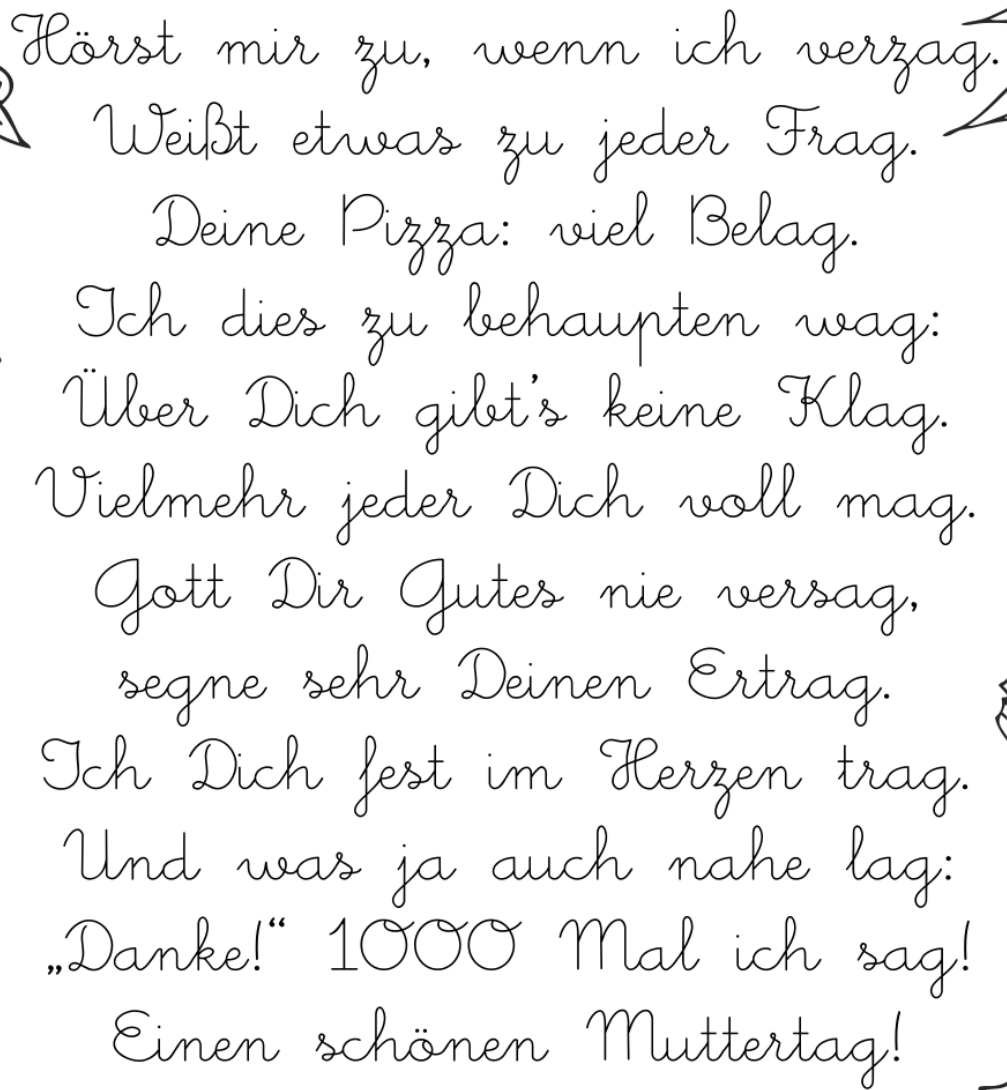 Hörst mir zu, wenn ich verzag.
Weißt etwas zu jeder Frag.
Deine Pizza: viel Belag.
Ich dies zu behaupten wag:
Über Dich gibt's keine Klag.
Vielmehr jeder Dich voll mag.
Gott Dir Gutes nie versag,
segne sehr Deinen Ertrag.
Ich Dich fest im Herzen trag.
Und was ja auch nahe lag:
„Danke!“ 1000 Mal ich sag!
Einen schönen Muttertag!